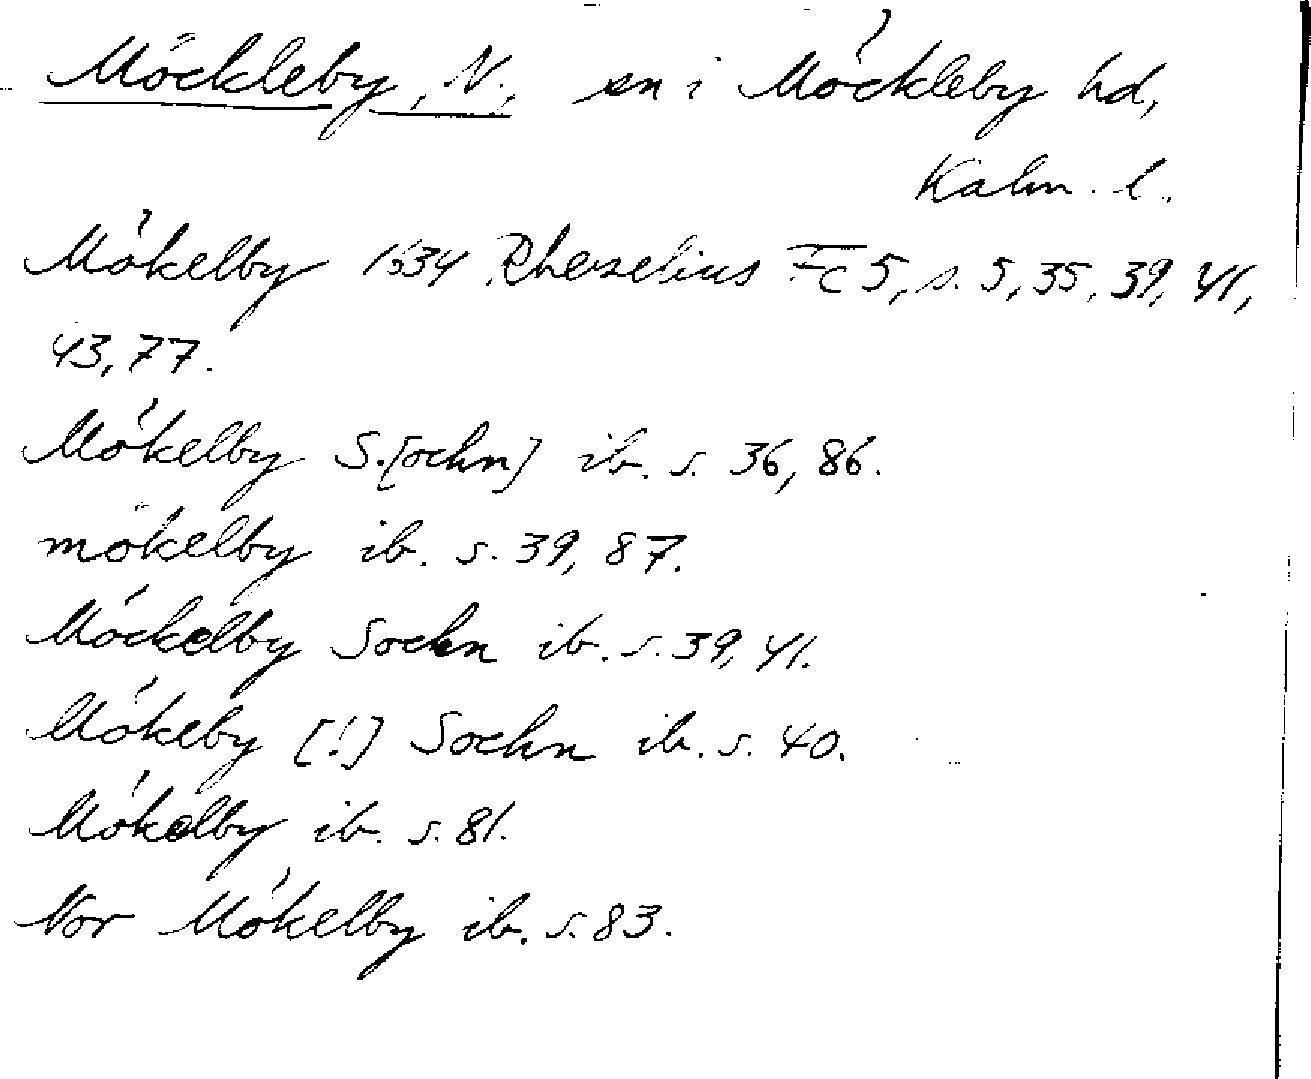 Möckleby, N., sn i Möckleby hd,
Kalm. l.
Mökelby 1634 Rhezelius Fc 5, s. 5, 35, 39, 41,
43, 77.
Mökelby S.[ochn] ib. s. 36, 86.
mökelby ib. s. 39, 87.
Möckelby Sochn ib. s. 39, 41.
Mökeby [!] Sochn ib. s. 40.
Mökelby ib. s. 81.
Nor Mökelby ib. s. 83.